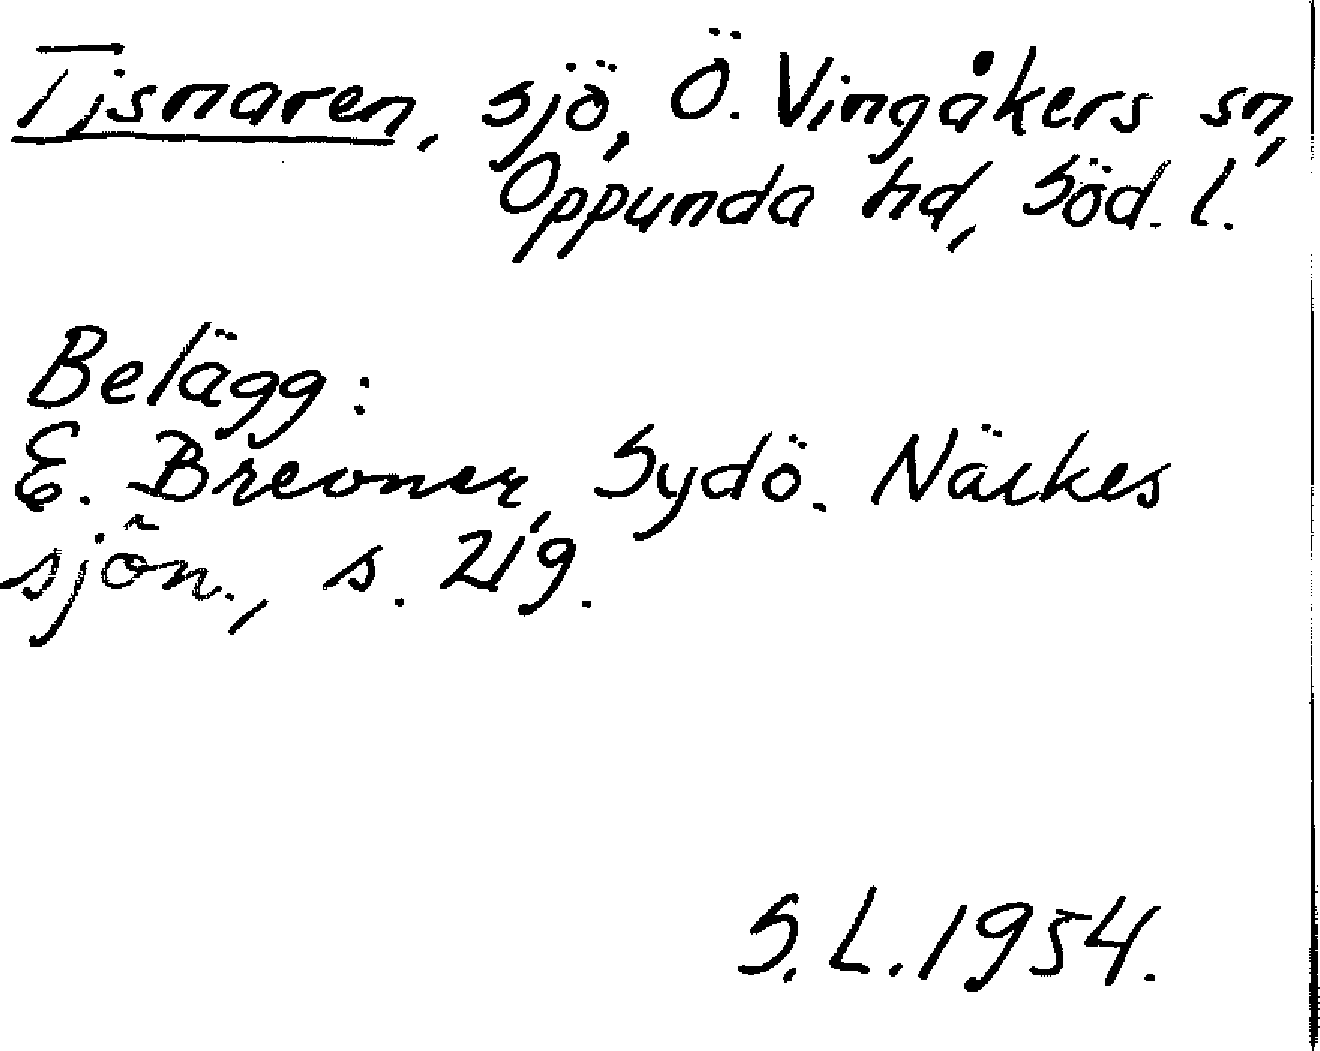 Tisnaren, sjö, Ö. Vingåkers sn,
Oppunda hd, Söd. l.
Belägg:
E. Brevner, Sydö. Närkes
sjön., s. 219.
S. L. 1954.